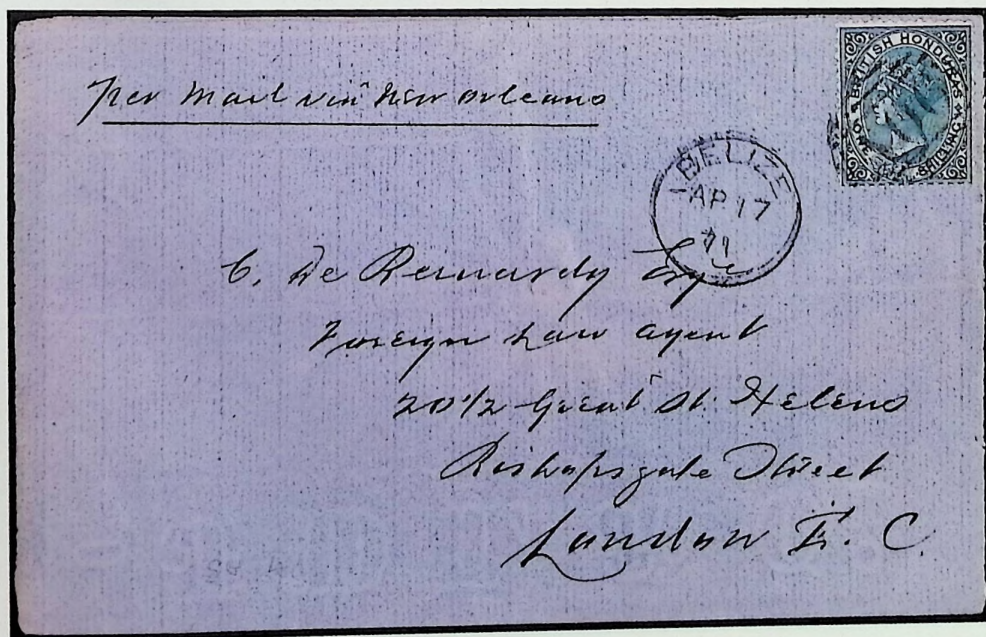 per Mail via New Orleans
BRITISH HONDURAS
ONE SHILLING
BELIZE
AP 17
C. De Bernardy Esq
Foreign Law Agent
20 1/2 Great St. Helens
Bishopsgate Street
London E. C.